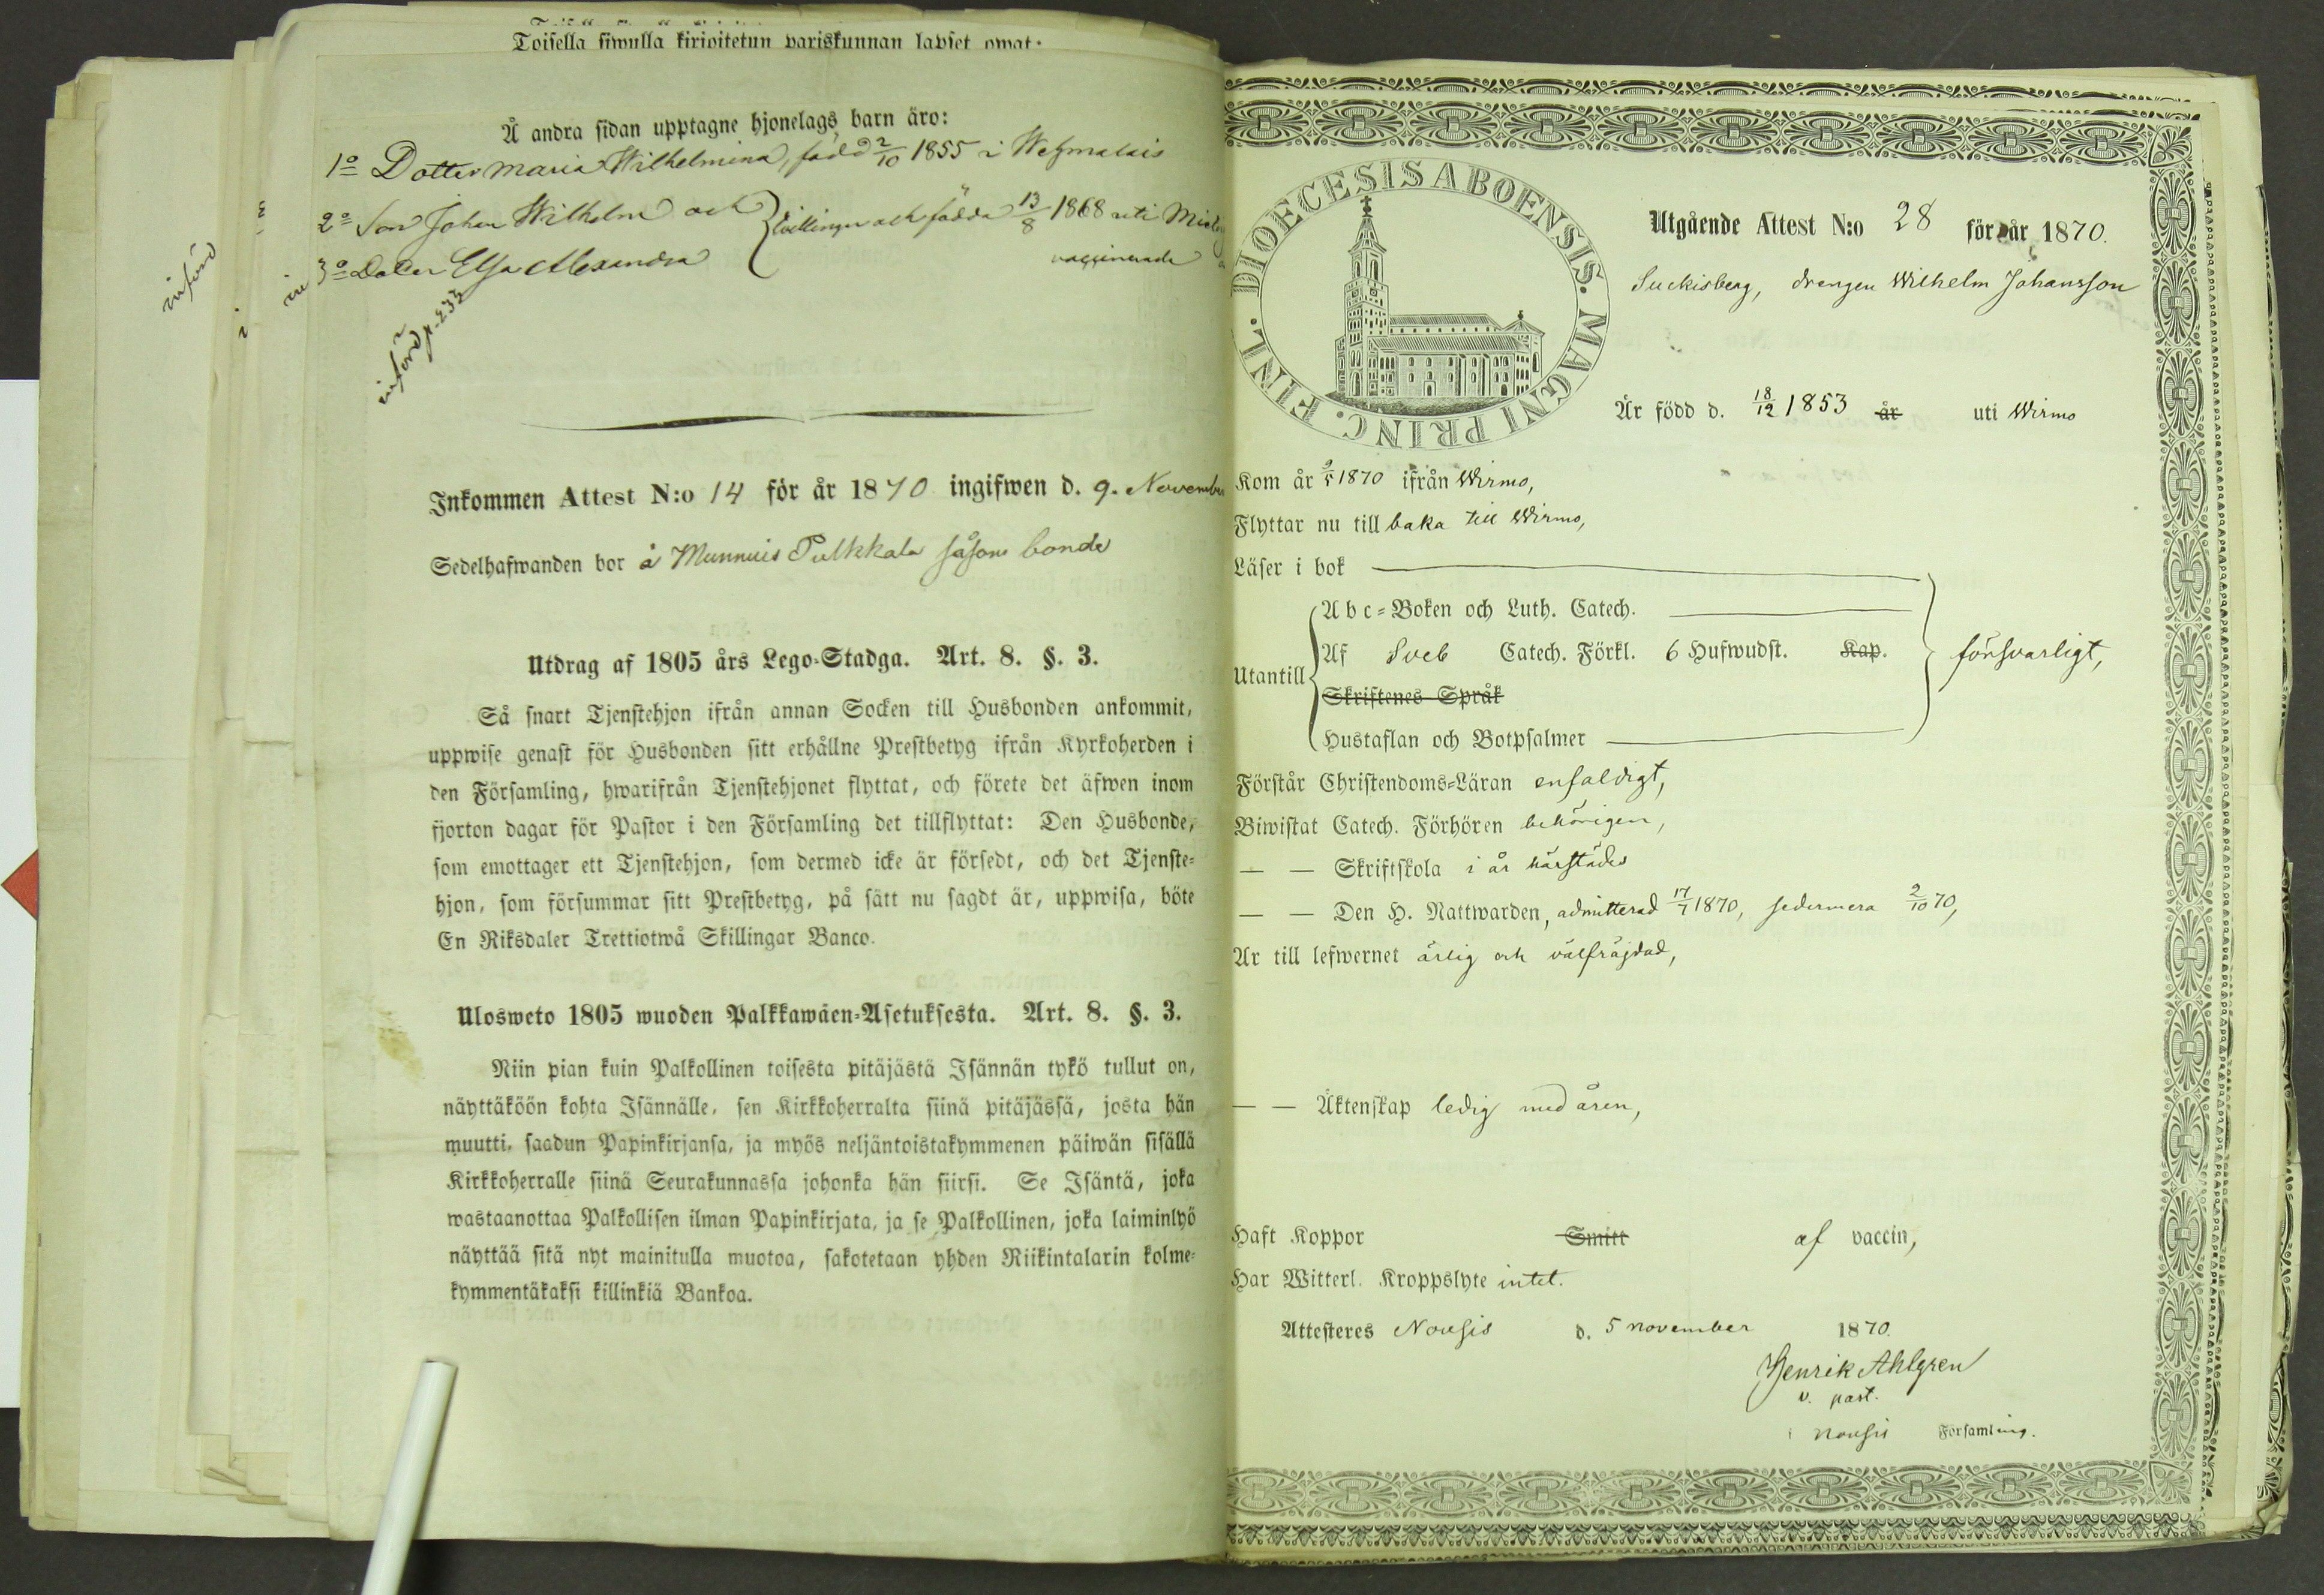 Toisella siwulla kirjoitetun pariskunnan lapset owat:
Å andra sidan upptagne hjonelags barn äro:
1o Dotter Maria Wilhelmina, född 2/10 1855 i
2o Son Johan Wilhelm och } tvillingar och födda 13/8 1868 uti
3o Dotter Elsa Alexandra vaccinerade
införd p. 233
införd
Inkommen Attest N:o 14 för år 1870 ingifwen d. 9. November
Sedelhafwanden bor å Munnuis Pulkkala såsom bonde
Utdrag af 1805 års Lego-Stadga. Art. 8. §. 3.
Så snart Tjenstehjon ifrån annan Socken till Husbonden ankommit,
uppwise genast för Husbonden sitt erhållne Prestbetyg ifrån Kyrkoherden i
den Församling, hwarifrån Tjenstehjonet flyttat, och förete det äfwen inom
fjorton dagar för Pastor i den Församling det tillflyttat: Den Husbonde,
som emottager ett Tjenstehjon, som dermed icke är försedt, och det Tjenste-
hjon, som försummar sitt Prestbetyg, på sätt nu sagdt är, uppwisa, böte
En Riksdaler Trettiotwå Skillingar Banco.
Ulosweto 1805 wuoden Palkkawäen-Asetuksesta. Art. 8. §. 3.
Niin pian kuin Palkollinen toisesta pitäjästä Isännän tykö tullut on,
näyttäköön kohta Isännälle, sen Kirkkoherralta siinä pitäjässä, josta hän
muutti, saadun Papinkirjansa, ja myös neljäntoistakymmenen päiwän sisällä
Kirkkoherralle siinä Seurakunnassa johonka hän siirsi. Se Isäntä, joka
wastaanottaa Palkollisen ilman Papinkirjata, ja se Palkollinen, joka laiminlyö
näyttää sitä nyt mainitulla muotoa, sakotetaan yhden Riikintalarin kolme-
kymmentäkaksi killinkiä Bankoa.
DIOECESIS ABOENSIS. MAGNI PRINC. FINL.
Utgående Attest N:o 28 för år 1870.
Suckisberg, drengen Wilhelm Johansson
Är född d. 18/12 1853 år uti Wirmo
Kom år 9/5 1870 ifrån Wirmo,
Flyttar nu till baka till Wirmo,
Läser i bok
Utantill
Abc-Boken och Luth. Catech.
Af Sveb Catech. Förkl. 6 Hufwudst. Kap. försvarligt,
Skriftenes Språk
Hustaflan och Botpsalmer
Förstår Christendoms-Läran enfaldigt,
Biwistat Catech. Förhören behörigen,
— — Skriftskola i år härstädes
— — Den H. Nattwarden, admitterad 17/7 1870, sedermera 2/10 70,
Är till lefwernet ärlig och välfräjdad,
— — Äktenskap ledig med åren,
Haft Koppor Smitt af vaccin,
Har Witterl. Kroppslyte intet.
Attesteres Nousis d. 5 november 1870.
Henrik Ahlgren
v. past.
i Nousis Församling.